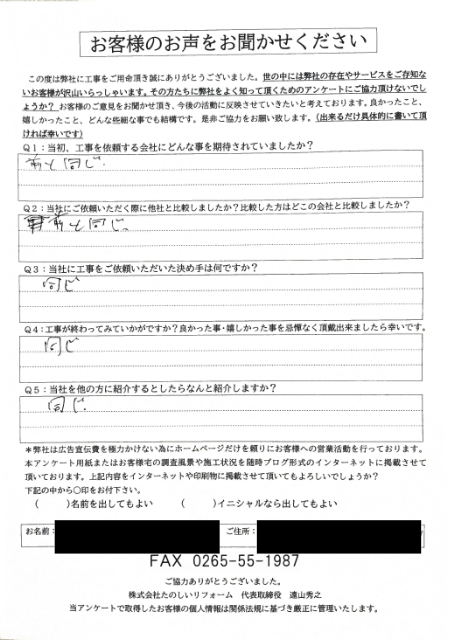 お客様のお声をお聞かせください
この度は弊社に工事をご用命頂き誠にありがとうございました。世の中には弊社の存在やサービスをご存知な
いお客様が沢山いらっしゃいます。その方たちに弊社をよく知って頂くためのアンケートにご協力頂けないでし
ょうか？ お客様のご意見をお聞かせ頂き、今後の活動に反映させていきたいと考えております。良かったこと、
嬉しかったこと、どんな些細な事でも結構です。是非ご協力をお願い致します。（出来るだけ具体的に書いて頂
ければ幸いです）
Q1：当初、工事を依頼する会社にどんな事を期待されていましたか？
前と同じ.
Q2：当社にご依頼いただく際に他社と比較しましたか？比較した方はどこの会社と比較しましたか？
前と同じ.
Q3：当社に工事をご依頼いただいた決め手は何ですか？
同じ
Q4：工事が終わってみていかがですか？良かった事・嬉しかった事を忌憚なく頂戴出来ましたら幸いです。
同じ
Q5：当社を他の方に紹介するとしたらなんと紹介しますか？
同じ.
＊弊社は広告宣伝費を極力かけない為にホームページだけを頼りにお客様への営業活動を行っております。
本アンケート用紙またはお客様宅の調査風景や施工状況を随時ブログ形式のインターネットに掲載させて
頂いております。上記内容をインターネットや印刷物に掲載させて頂いてもよろしいでしょうか？
下記の中から○印をお付下さい。
（　　）名前を出してもよい　（　　）イニシャルなら出してもよい
お名前：　ご住所：
FAX 0265-55-1987
ご協力ありがとうございました。
株式会社たのしいリフォーム　代表取締役　遠山秀之
当アンケートで取得したお客様の個人情報は関係法規に基づき厳正に管理いたします。